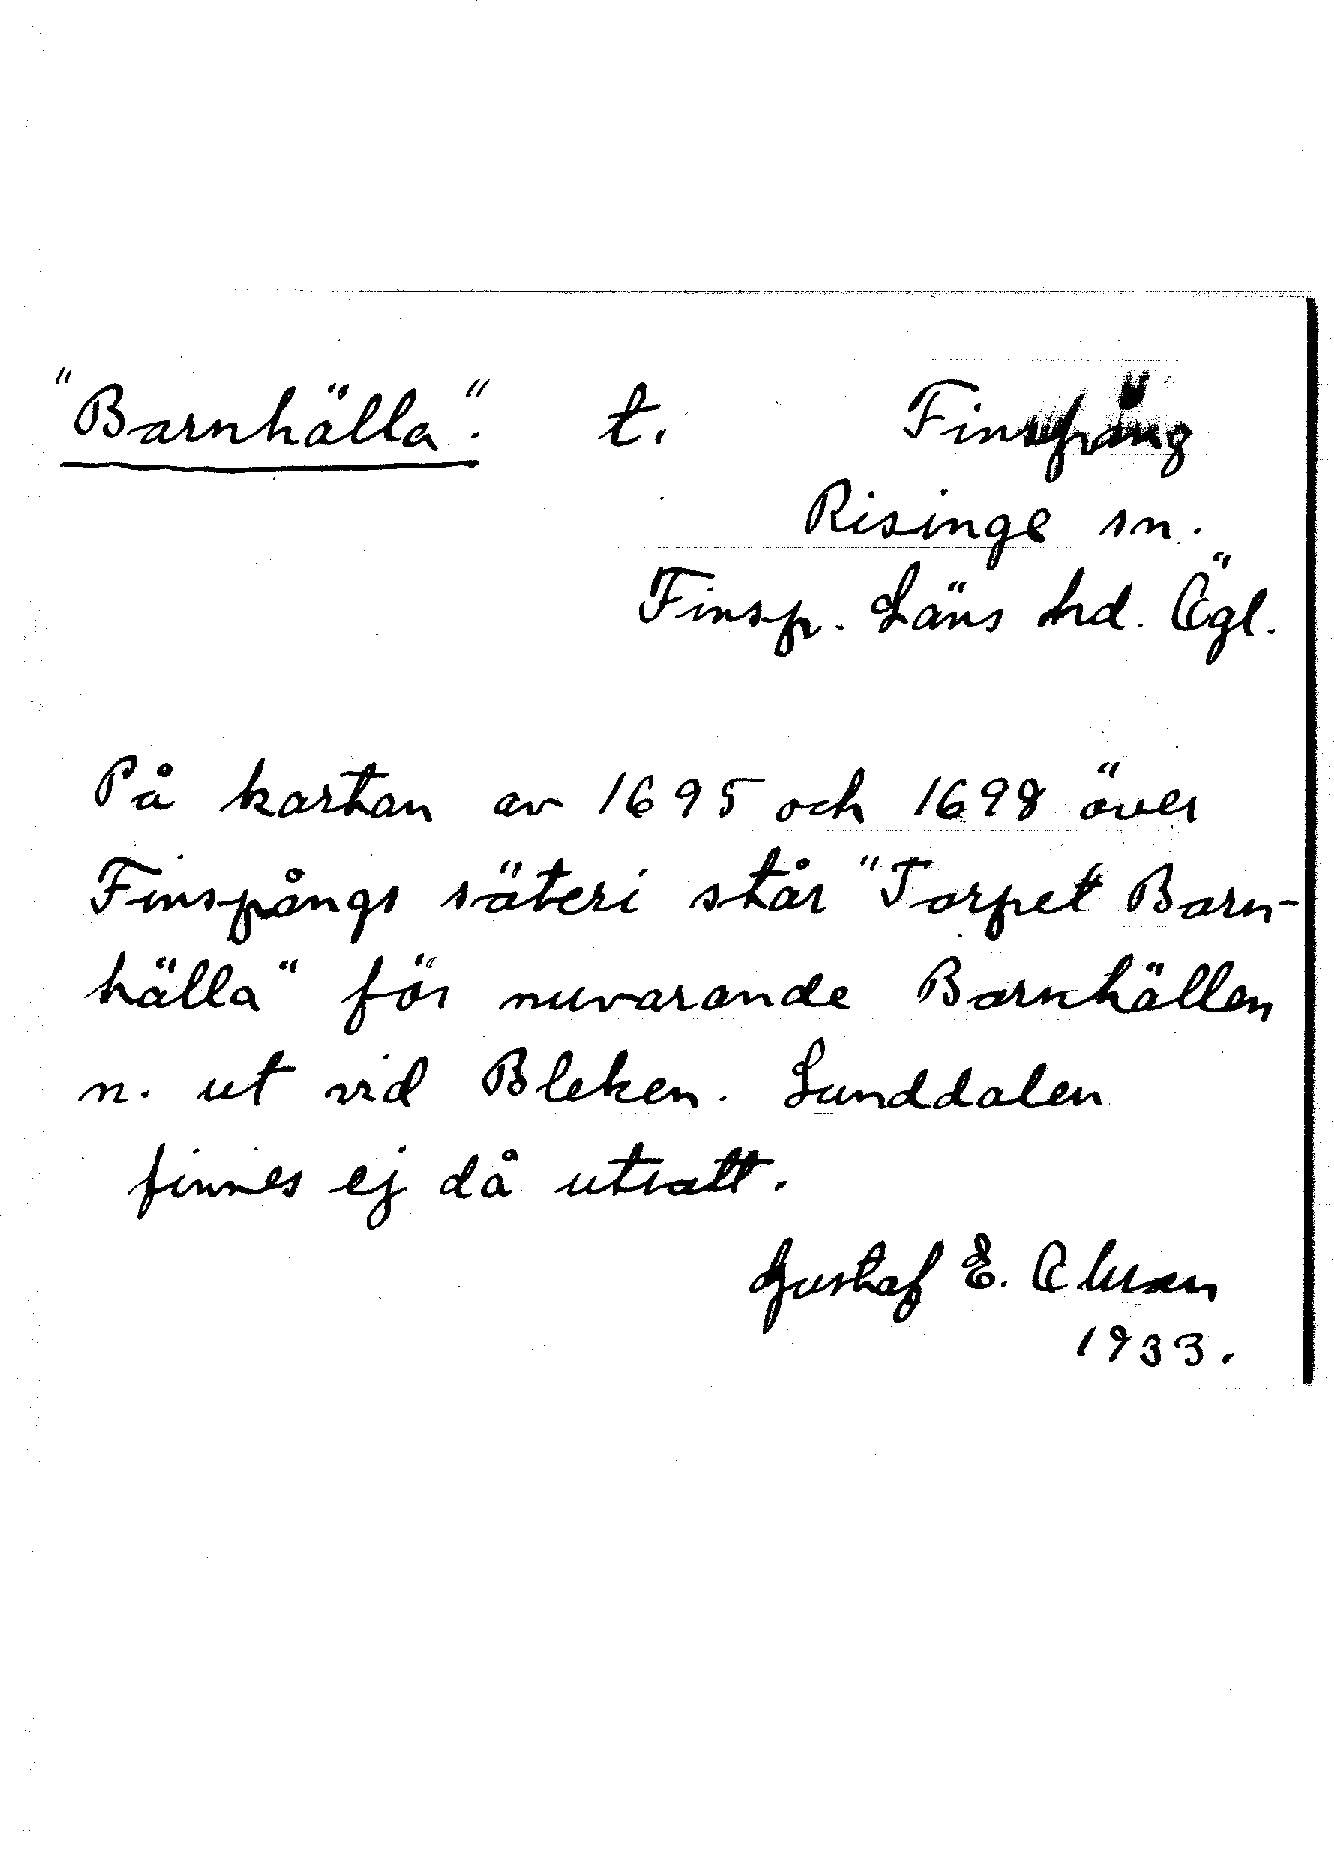 "Barnhälla". t. Finspång
Risinge sn.
Finsp. Läns hd. Ögl.
På kartan av 1695 och 1698 över
Finspångs säteri står "Torpet Barn-
hälla" för nuvarande Barnhällen
n. ut vid Bleken. Lunddalen
finnes ej då utsatt.
Gustaf E.
1933.